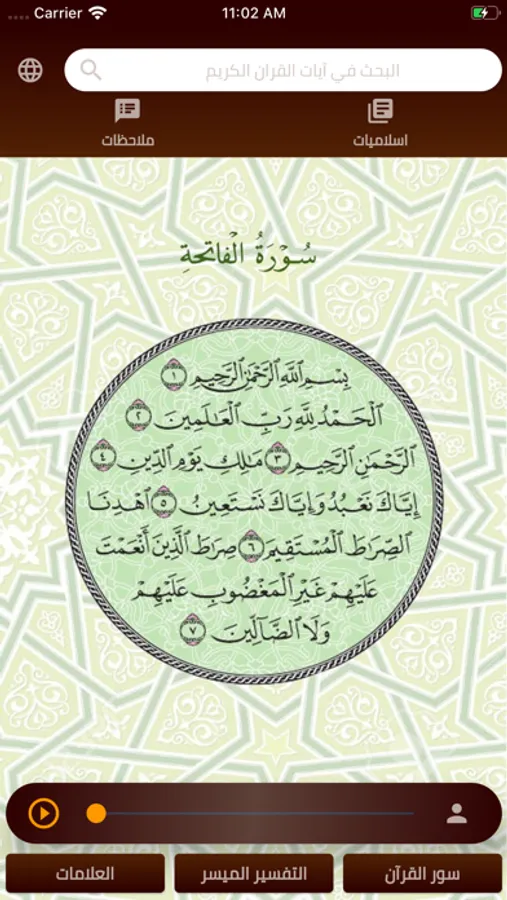 Carrier 11:02 AM
البحث في آيات القران الكريم
اسلاميات
ملاحظات
سُورَةُ الْفَاتِحَةِ
بِسْمِ ٱللَّهِ ٱلرَّحْمَٰنِ ٱلرَّحِيمِ ١
ٱلْحَمْدُ لِلَّهِ رَبِّ ٱلْعَٰلَمِينَ ٢
ٱلرَّحْمَٰنِ ٱلرَّحِيمِ ٣ مَٰلِكِ يَوْمِ ٱلدِّينِ ٤
إِيَّاكَ نَعْبُدُ وَإِيَّاكَ نَسْتَعِينُ ٥ ٱهْدِنَا
ٱلصِّرَٰطَ ٱلْمُسْتَقِيمَ ٦ صِرَٰطَ ٱلَّذِينَ أَنْعَمْتَ
عَلَيْهِمْ غَيْرِ ٱلْمَغْضُوبِ عَلَيْهِمْ
وَلَا ٱلضَّآلِّينَ ٧
سور القرآن
التفسير الميسر
العلامات